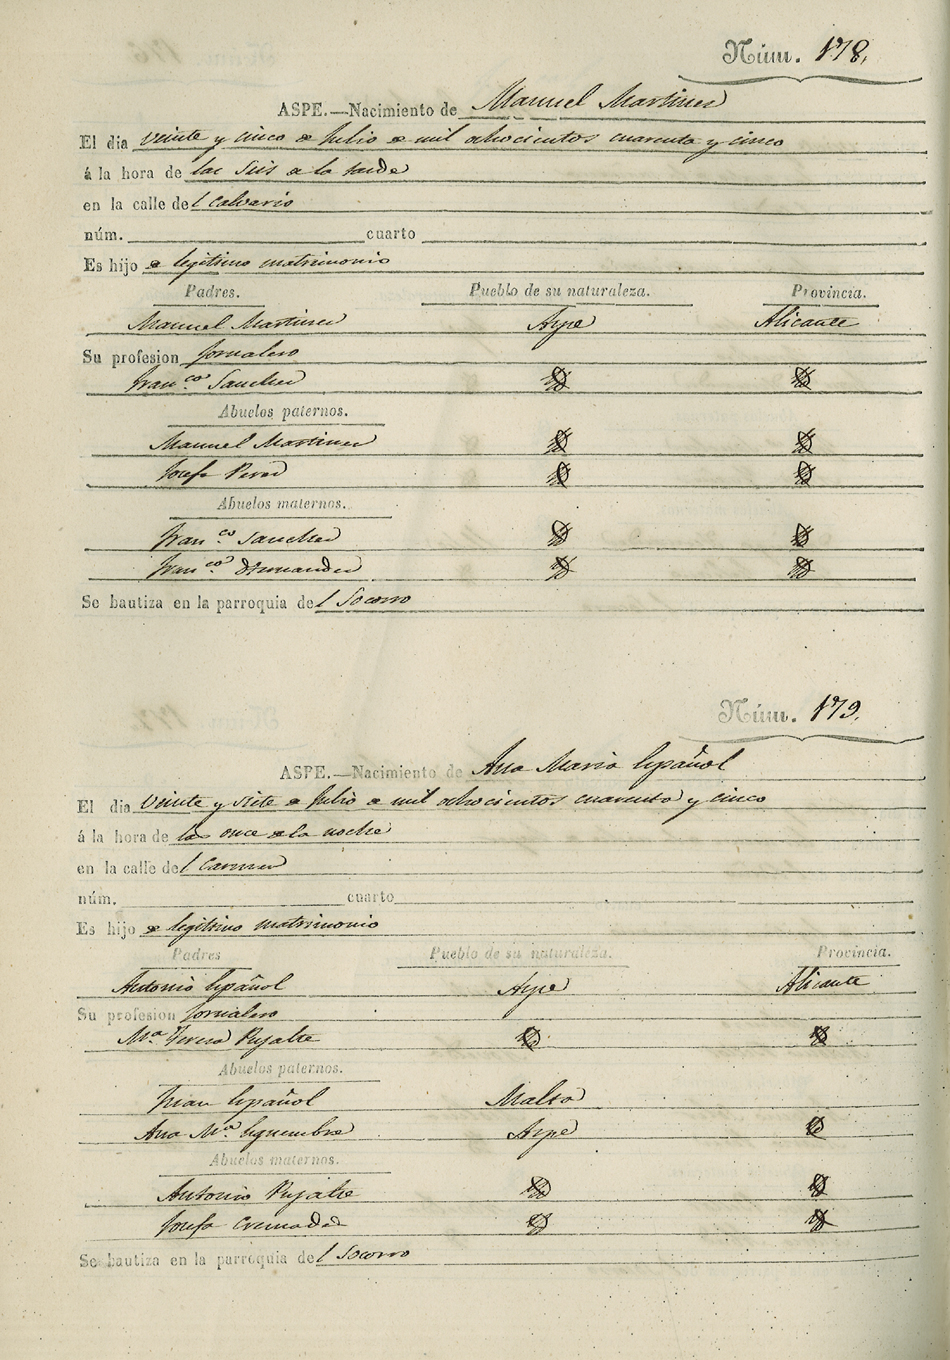 Núm. 178.
ASPE.—Nacimiento de Manuel Martinez
El dia veinte y cinco de Julio de mil ochocientos cuarenta y cinco
á la hora de las seis de la tarde
en la calle del Calvario
núm. cuarto
Es hijo de legitimo matrimonio
Padres. Pueblo de su naturaleza. Provincia.
Manuel Martinez Aspe Alicante
Su profesion Jornalero
Fran.ca Sanchez
Abuelos paternos.
Manuel Martinez
Josefa Perez
Abuelos maternos.
Fran.co Sanchez
Fran.ca Hernandez
Se bautiza en la parroquia del Socorro
Núm. 179.
ASPE.—Nacimiento de Ana Maria Español
El dia veinte y siete de Julio de mil ochocientos cuarenta y cinco
á la hora de las once de la noche
en la calle del Carmen
núm. cuarto
Es hijo de legitimo matrimonio
Padres Pueblo de su naturaleza. Provincia.
Antonio Español Aspe Alicante
Su profesion Jornalero
Mª. Teresa Pujalte
Abuelos paternos.
Juan Español Malta
Ana Mª. Aspe
Abuelos maternos.
Antonio Pujalte
Josefa Cremades
Se bautiza en la parroquia del Socorro